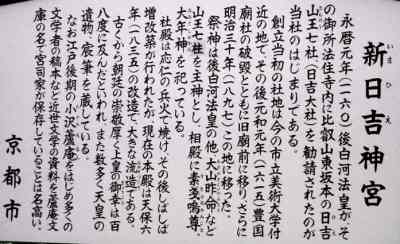 新日吉神宮
いまひえ
永暦元年(一一六〇)後白河法皇が、そ
の御所法住寺内に比叡山東坂本の日吉
山王七社(日吉大社)を勧請されたのが
当社のはじまりである。
創立当初の社地は今の市立美術大学付
近の地で、その後元和元年(一六一五)豊国
廟社の破毀とともに旧廟前に移り、さらに
明治三十年(一八九七)この地に移った。
祭神は後白河法皇の他、大山咋命など
山王七柱を主神とし、相殿に素盞鳴尊、
大年神を祀っている。
社殿は応仁の兵火で焼け、その後しばしば
増改築が行われたが、現在の本殿は天保六
年(一八三五)の改造で、大きな流造である。
古くから朝廷の崇敬厚く上皇の御幸は百
八度に及んだといわれ、また数多く天皇の
遺物、宸筆を蔵している。
なお江戸後期の小沢蘆庵をはじめ多くの
文学者の稿本など近世文学の資料を蘆庵文
庫の名で宮司家が保存していることは名高い。
京都市